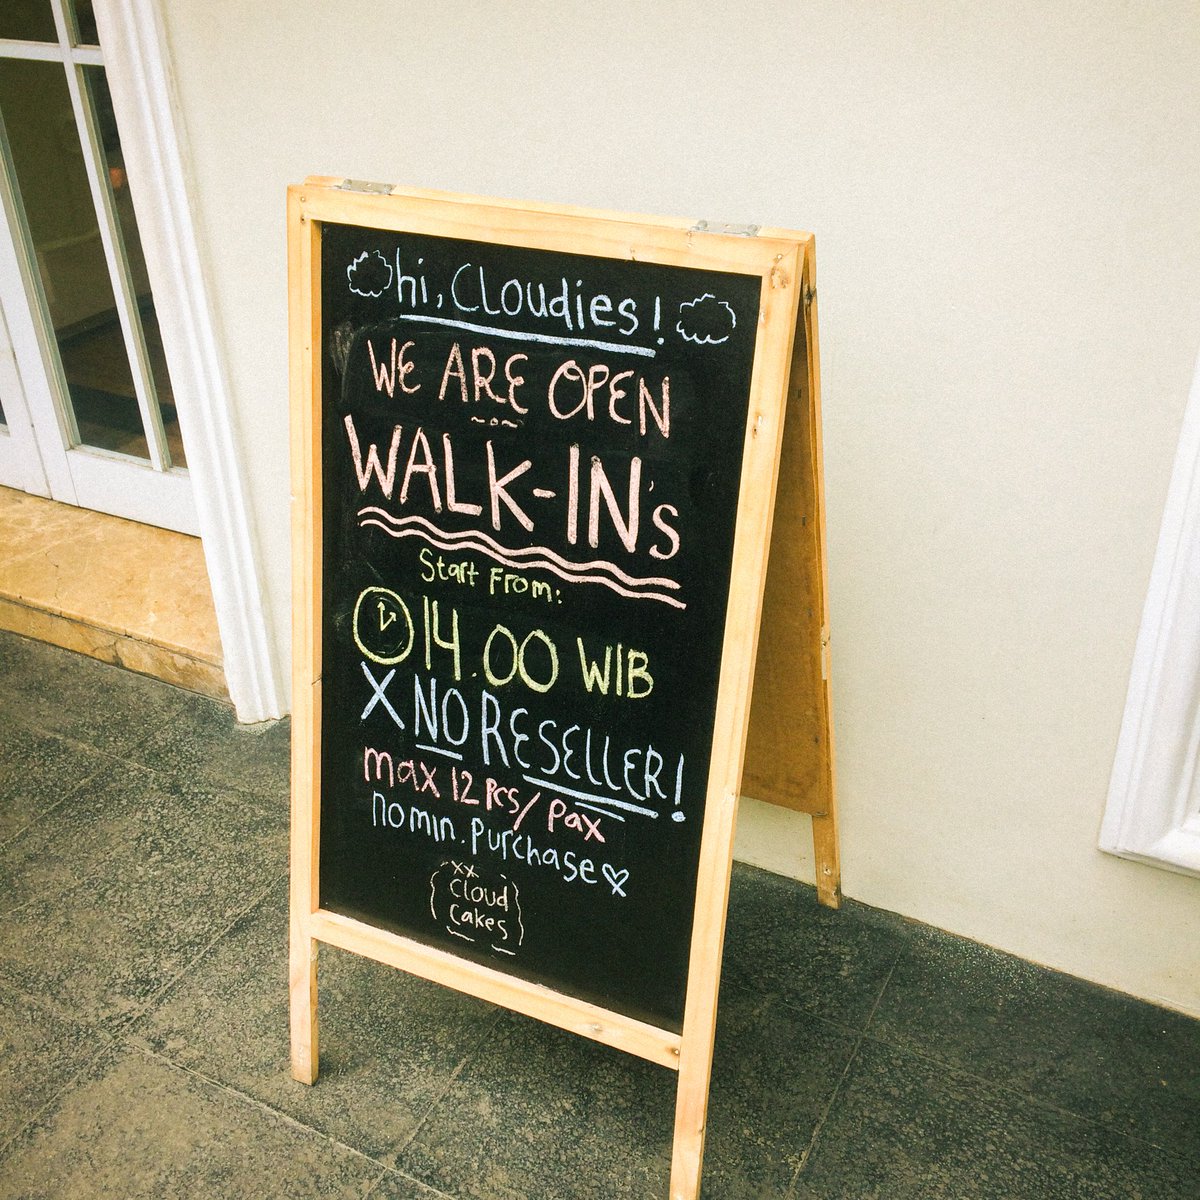 hi, Cloudies!
WE ARE OPEN
WALK-IN's
Start From:
14.00 WIB
X NO RESELLER!
max 12 Pcs/Pax
no min. Purchase
xx
Cloud
Cakes